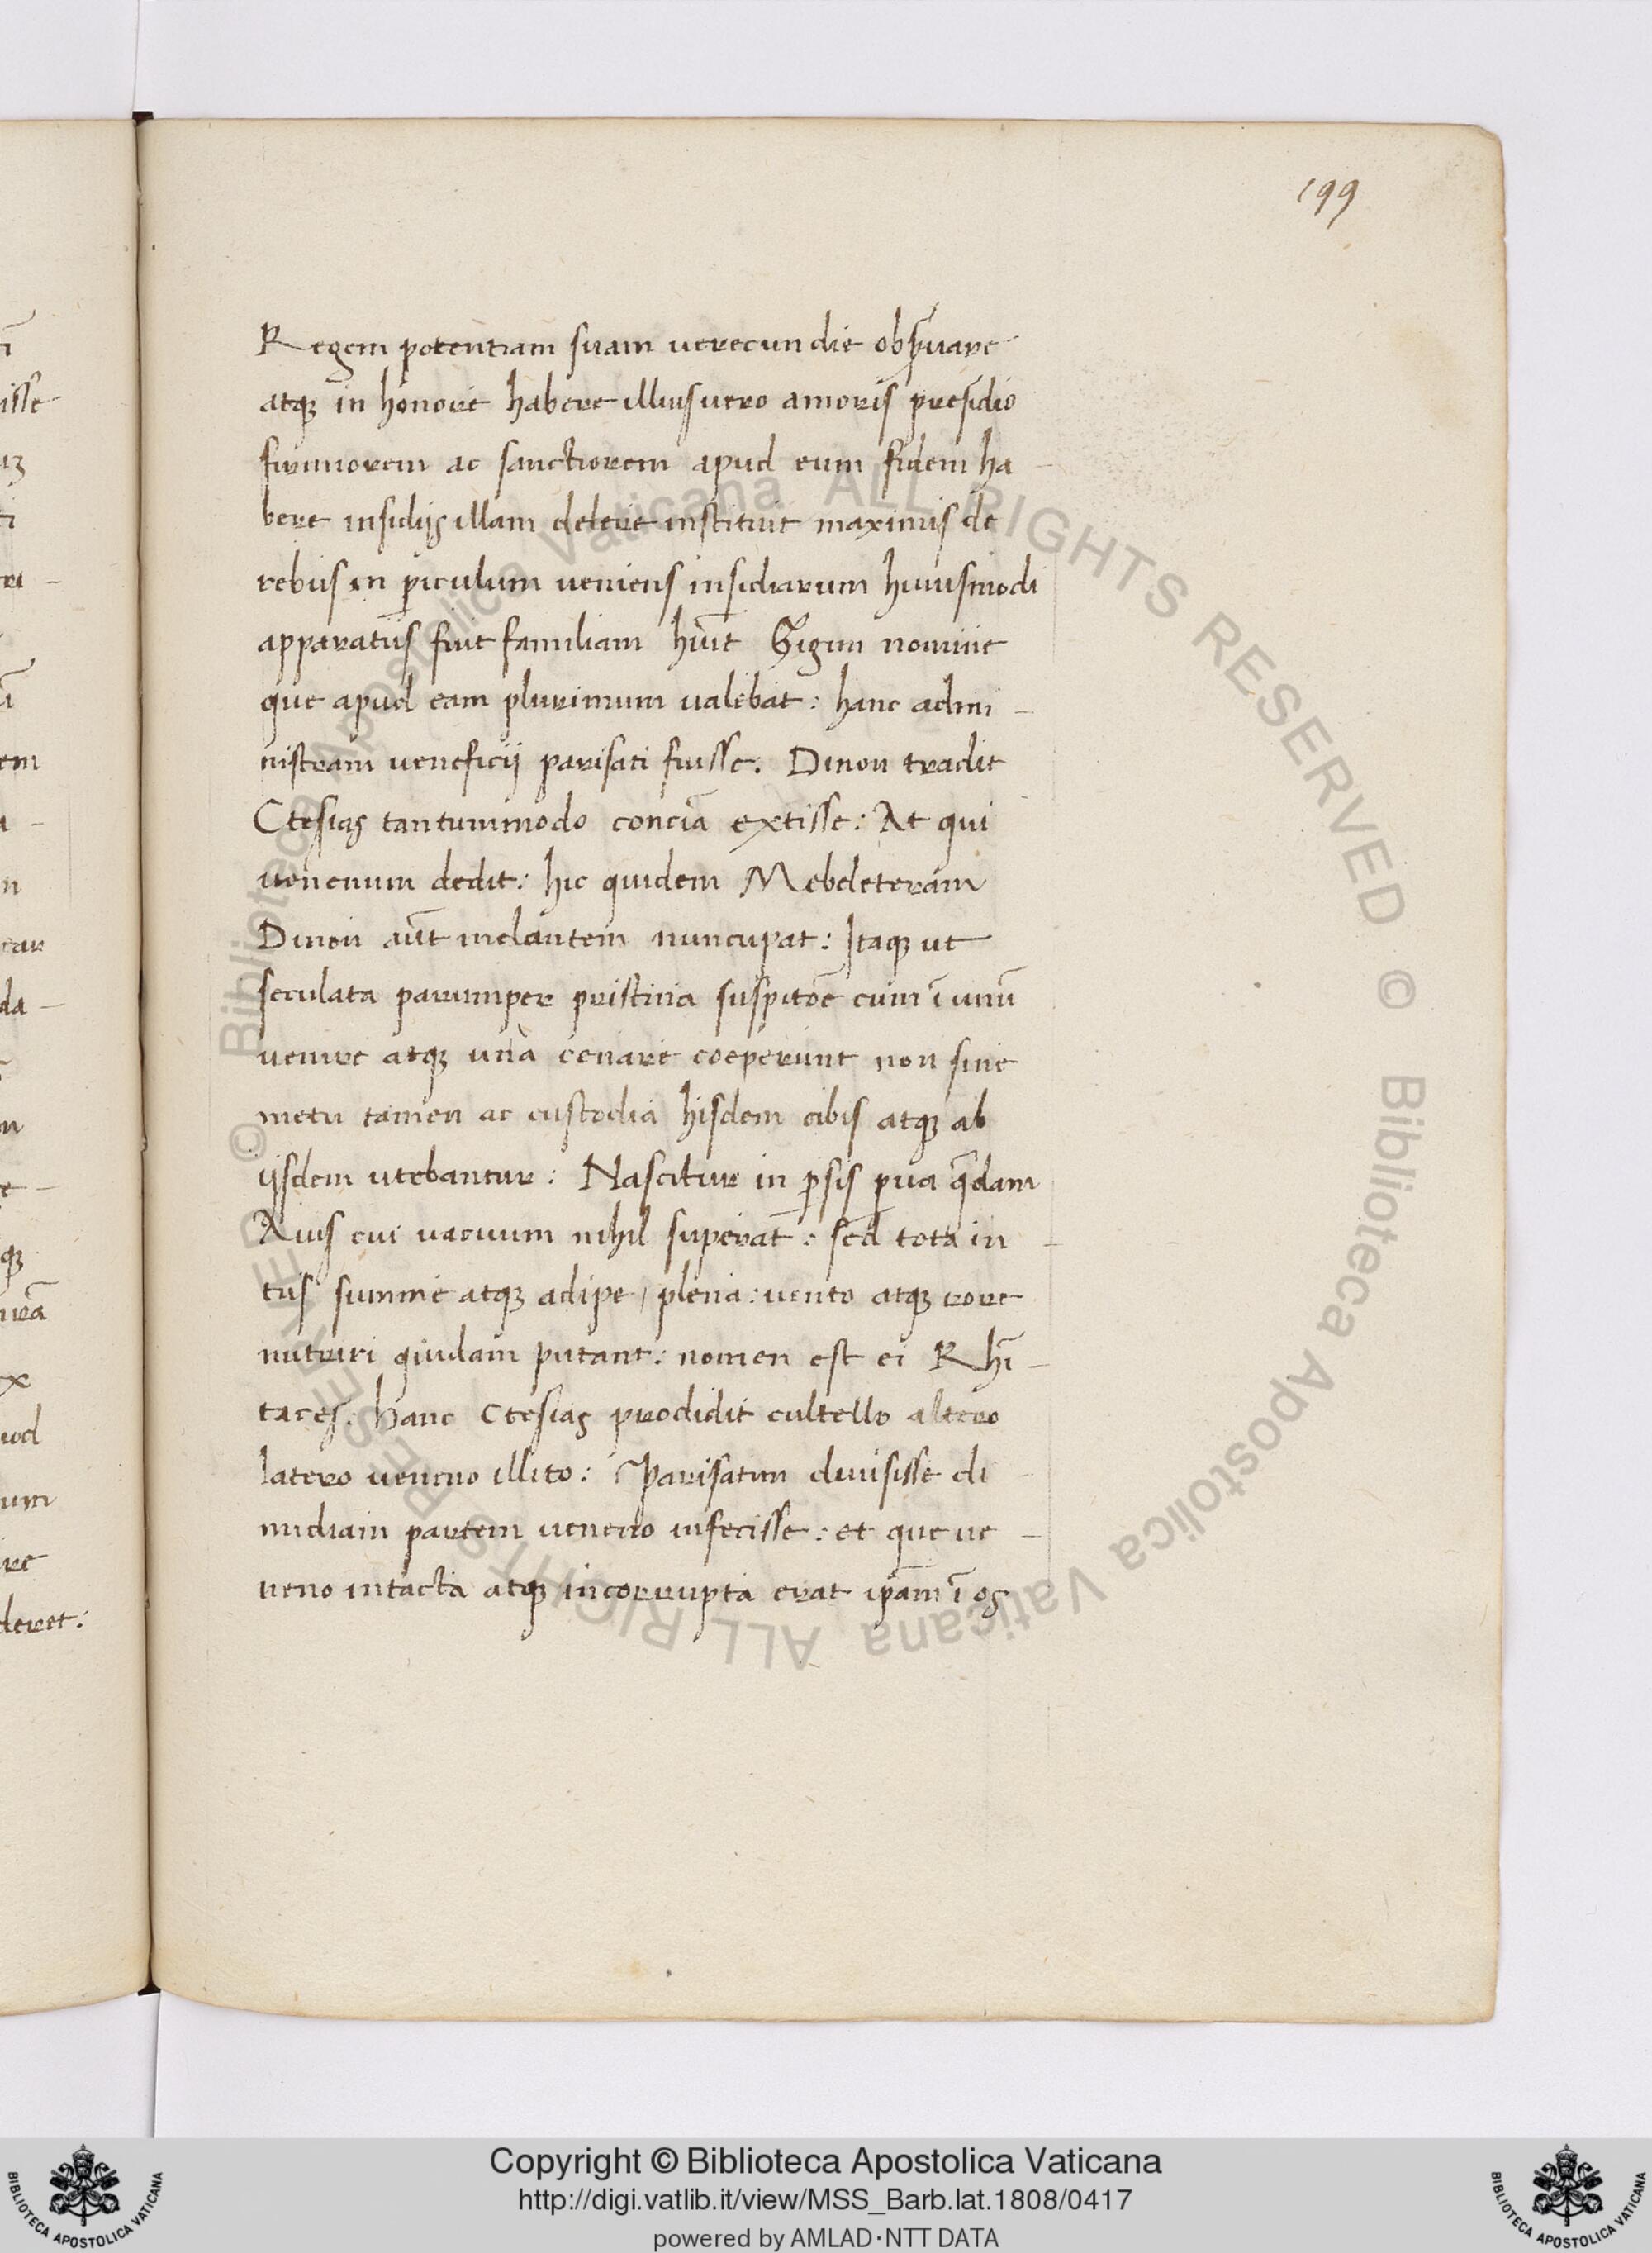 199
Regem potentiam suam verecundie obs̄uare
atqꝫ in honore habere illius uero amoris presidio
firmiorem ac sanctiorem apud eum fidem ha-
bere insidijs illam delere instituit maximis de
rebus in ꝑiculum ueniens insidiarum huiusmodi
apparatus fuit familiam hūit Gigim nomine
que apud eam plurimum valebat: hanc admi-
nistram ueneficij parisati fuisse. Dinon tradit
Ctesias tantummodo conciā extisse: At qui
uenenum dedit: hic quidem Mebeleteram
Dinon aūt melantem nuncupat: Itaqꝫ ut
seculata parumper pristina suspitōe cum ī unū
uenire atqꝫ una cenare coeperunt non sine
metu tamen ac custodia hisdem cibis atqꝫ ab
ijsdem utebantur: Nascitur in ꝑsis ꝑua q̄dam
Auis cui uacuum nihil superat: sed tota in-
tus summe atqꝫ adipe / plena: uento atqꝫ rore
nutriri quidam putant: nomen est ei Rhī-
taces. hanc Ctesias prodidit cultello altero
latero ueneno illito: Parisatim diuisisse di-
midiam partem ueneno infecisse: et que ue-
neno intacta atqꝫ incorrupta erat ip̄am ī os
isse
deret:
Copyright © Biblioteca Apostolica Vaticana
http://digi.vatlib.it/view/MSS_Barb.lat.1808/0417
powered by AMLAD·NTT DATA
BIBLIOTECA APOSTOLICA VATICANA
BIBLIOTECA APOSTOLICA VATICANA
© Biblioteca Apostolica Vaticana ALL RIGHTS RESERVED © Biblioteca Apostolica Vaticana ALL RIGHTS RESERVED